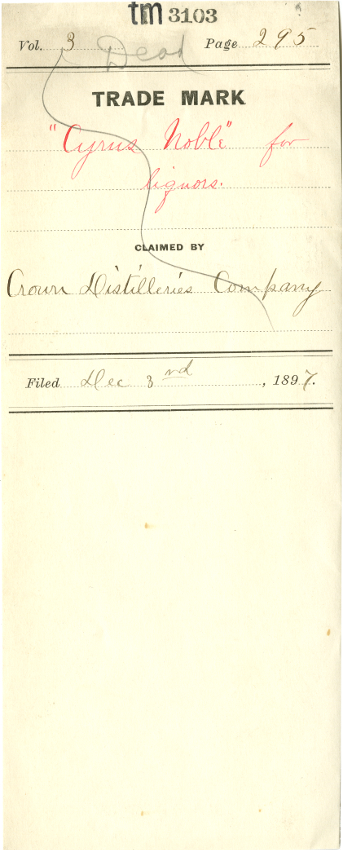 tm 3103
Vol. 3 Dead Page 295
TRADE MARK
"Cyrus Noble" for
liquors.
CLAIMED BY
Crown Distilleries Company
Filed Dec 3rd, 1897.